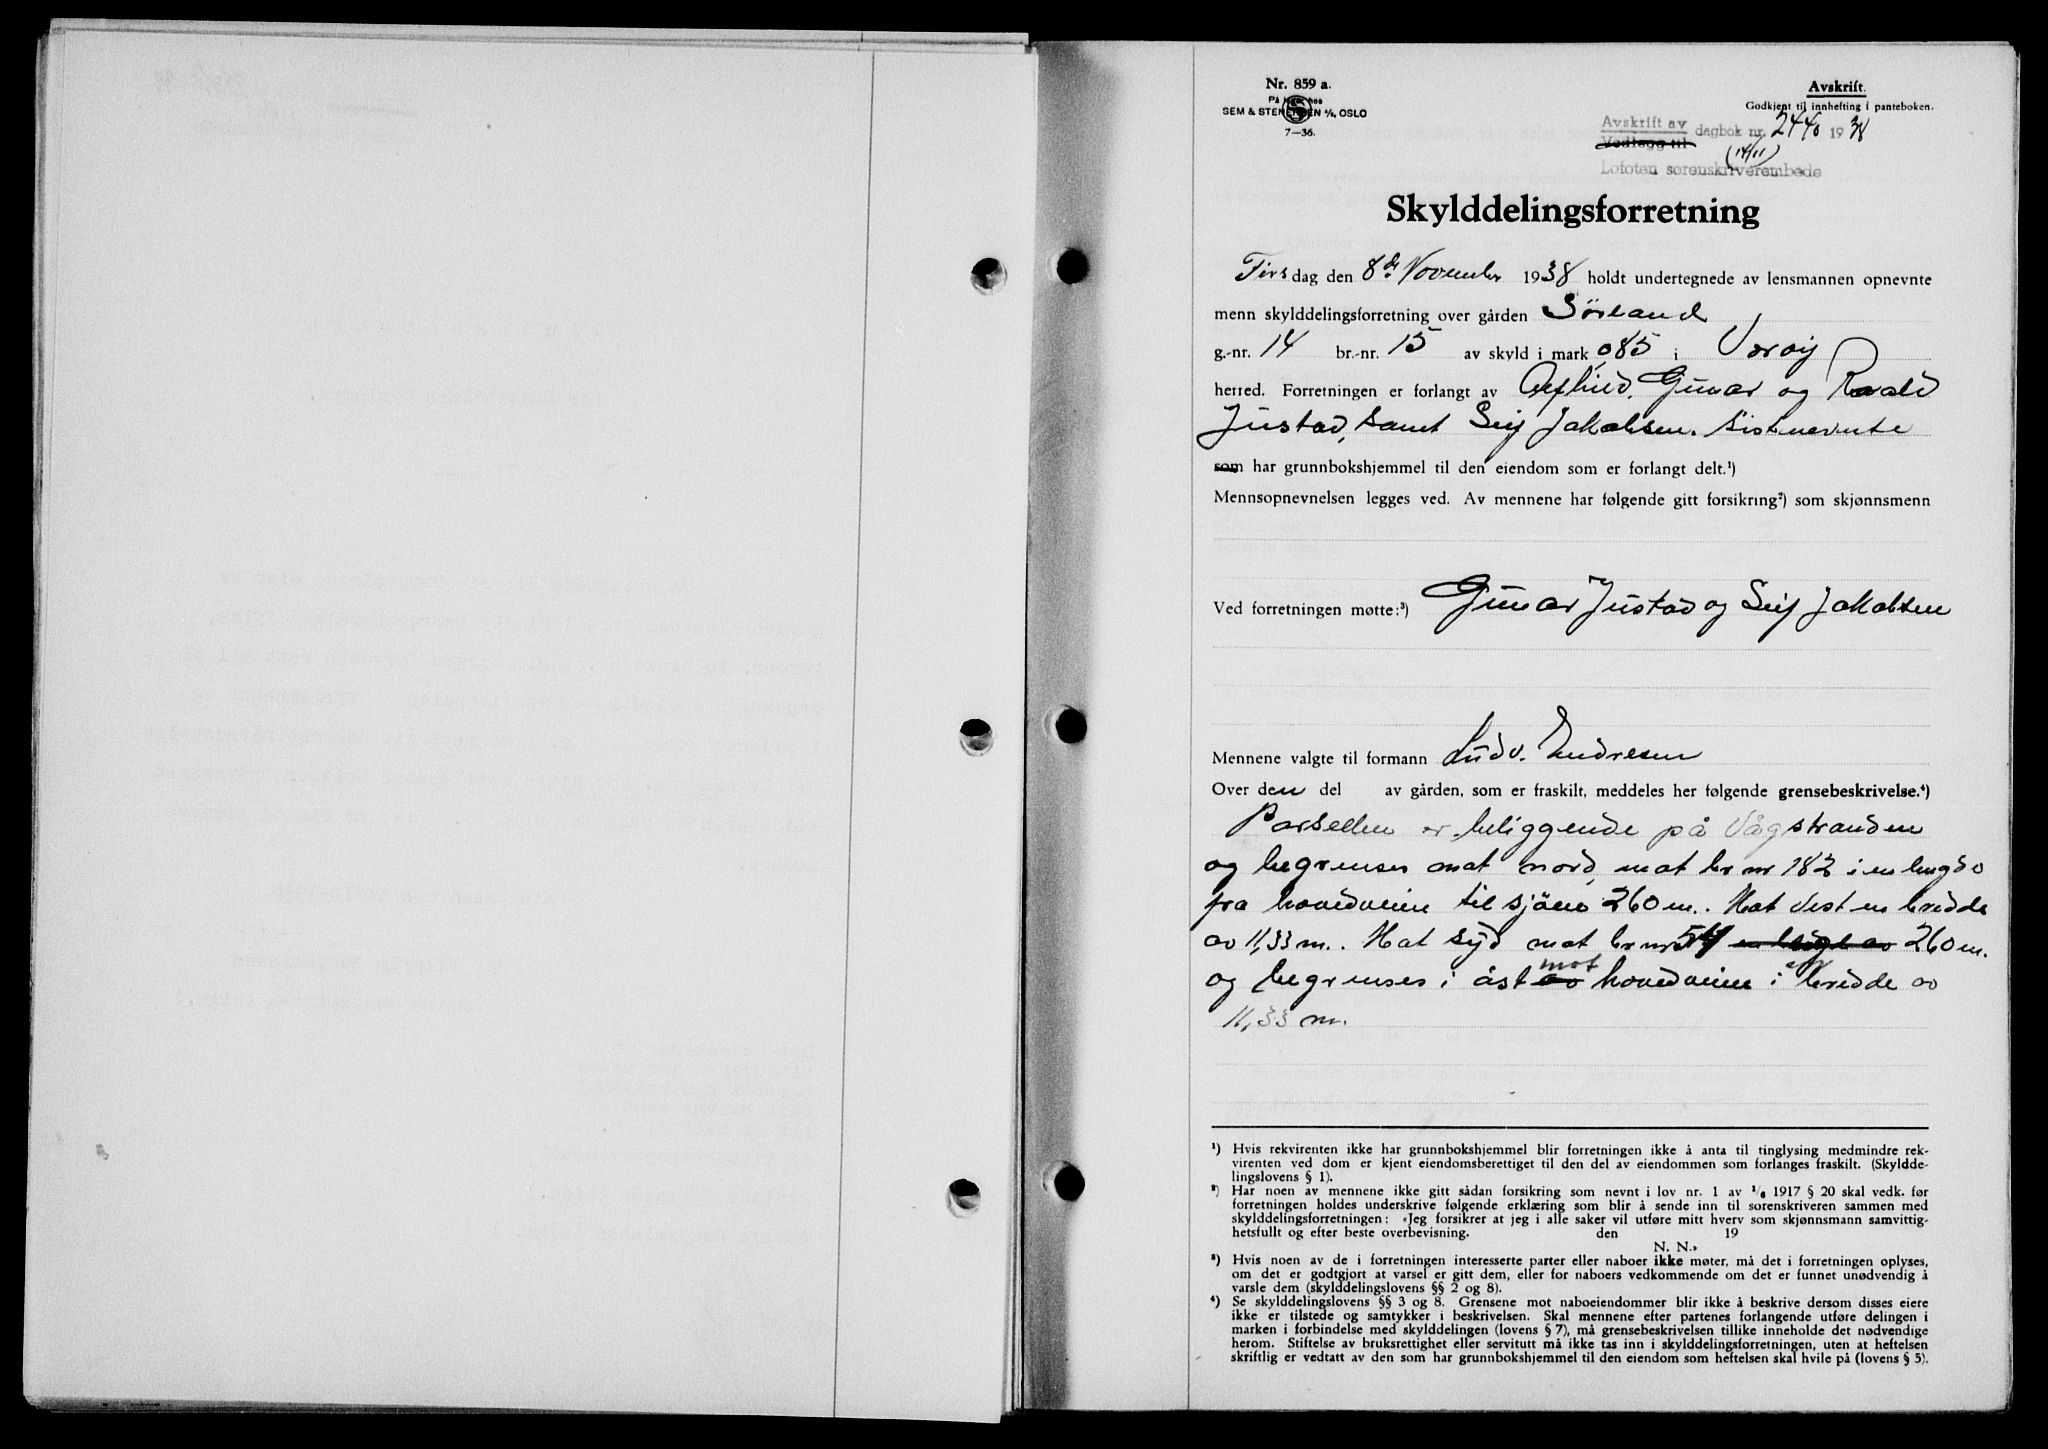 Nr. 859 a.
På lager hos
SEM & STENERSEN A/S, OSLO
7—36.
Avskrift.
Godkjent til innhefting i panteboken.
Avskrift av
Vedlegg til
dagbok nr. 2440 1938
(14/11)
Lofoten sorenskriverembede
Skylddelingsforretning
Tirsdag den 8de November 1938 holdt undertegnede av lensmannen opnevnte
menn skylddelingsforretning over gården Sörland
g.-nr. 14 br.-nr. 15 av skyld i mark 0,85 i Værøy
herred. Forretningen er forlangt av Gunar og
Justad, samt Leif Jakobsen. Sistnevnte
som har grunnbokshjemmel til den eiendom som er forlangt delt.¹)
Mennsopnevnelsen legges ved. Av mennene har følgende gitt forsikring²) som skjønnsmenn
Ved forretningen møtte:³) Gunar Justad og Leif Jakobsen
Mennene valgte til formann Ludv. Endresen
Over den del av gården, som er fraskilt, meddeles her følgende grensebeskrivelse.⁴)
Parsellen er beliggende på Vågstranden
og begrenses mot nord, mot br nr 182 i en lengde
fra hovedveien til sjöen 260 m. Mot Vest en bredde
av 11,33 m. Mot syd mot br nr 54 en lengde av 260 m.
og begrenses i öst av mot hovedveien i en bredde av
11,33 m.
¹) Hvis rekvirenten ikke har grunnbokshjemmel blir forretningen ikke å anta til tinglysing medmindre rek-
virenten ved dom er kjent eiendomsberettiget til den del av eiendommen som forlanges fraskilt. (Skyldde-
lingslovens § 1).
²) Har noen av mennene ikke gitt sådan forsikring som nevnt i lov nr. 1 av 1/6 1917 § 20 skal vedk. før
forretningen holdes underskrive følgende erklæring som blir å sende inn til sorenskriveren sammen med
skylddelingsforretningen: «Jeg forsikrer at jeg i alle saker vil utføre mitt hverv som skjønnsmann samvittig-
hetsfullt og efter beste overbevisning. den 19
N. N.»
³) Hvis noen av de i forretningen interesserte parter eller naboer ikke møter, må det i forretningen oplyses,
om det er godtgjort at varsel er gitt dem, eller for naboers vedkommende om det er funnet unødvendig å
varsle dem (skylddelingslovens §§ 2 og 8).
⁴) Se skylddelingslovens §§ 3 og 8. Grensene mot naboeiendommer blir ikke å beskrive dersom disses eiere
ikke er tilstede og samtykker i beskrivelsen. Skal mennene efter partenes forlangende utføre delingen i
marken i forbindelse med skylddelingen (lovens § 7), må grensebeskrivelsen tillike inneholde det nødvendige
herom. Stiftelse av bruksrettighet eller servitutt må ikke tas inn i skylddelingsforretningen, uten at heftelsen
skriftlig er vedtatt av den som har grunnbokshjemmel til den eiendom som heftelsen skal hvile på (lovens § 5).